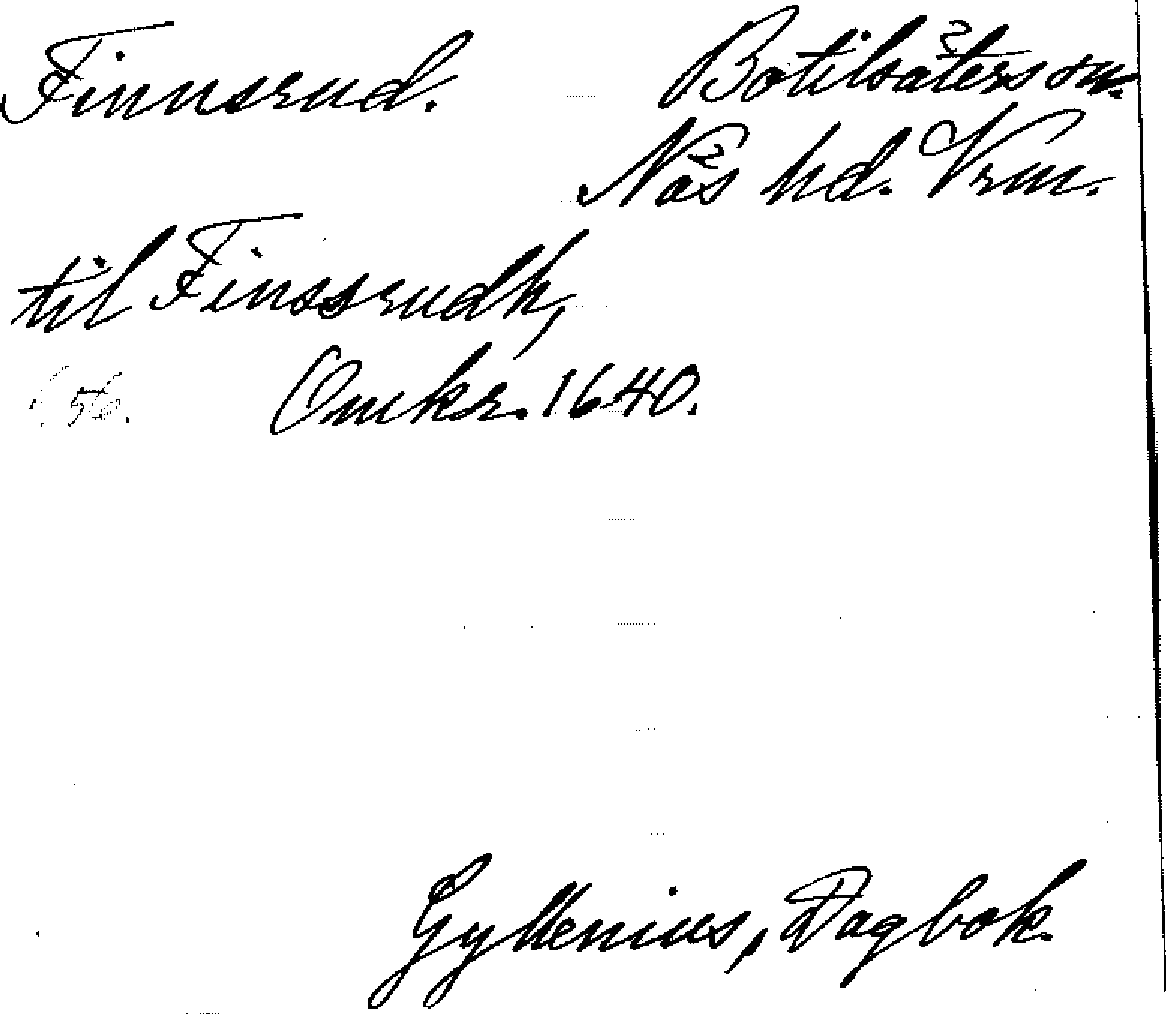 Finnsrud. Botilsäters sn.
Näs hd. Vrm.
til Finssrudh,
Omkr. 1640.
Gyllenius, Dagbok.